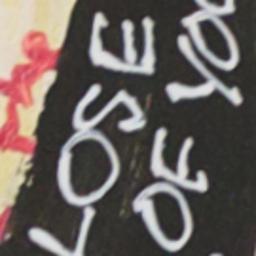 LOSE
OF YOU